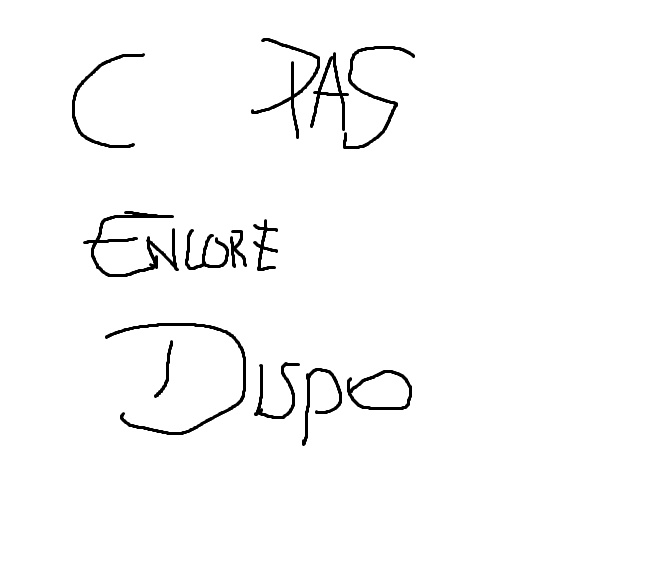 C PAS
ENCORE
DISPO